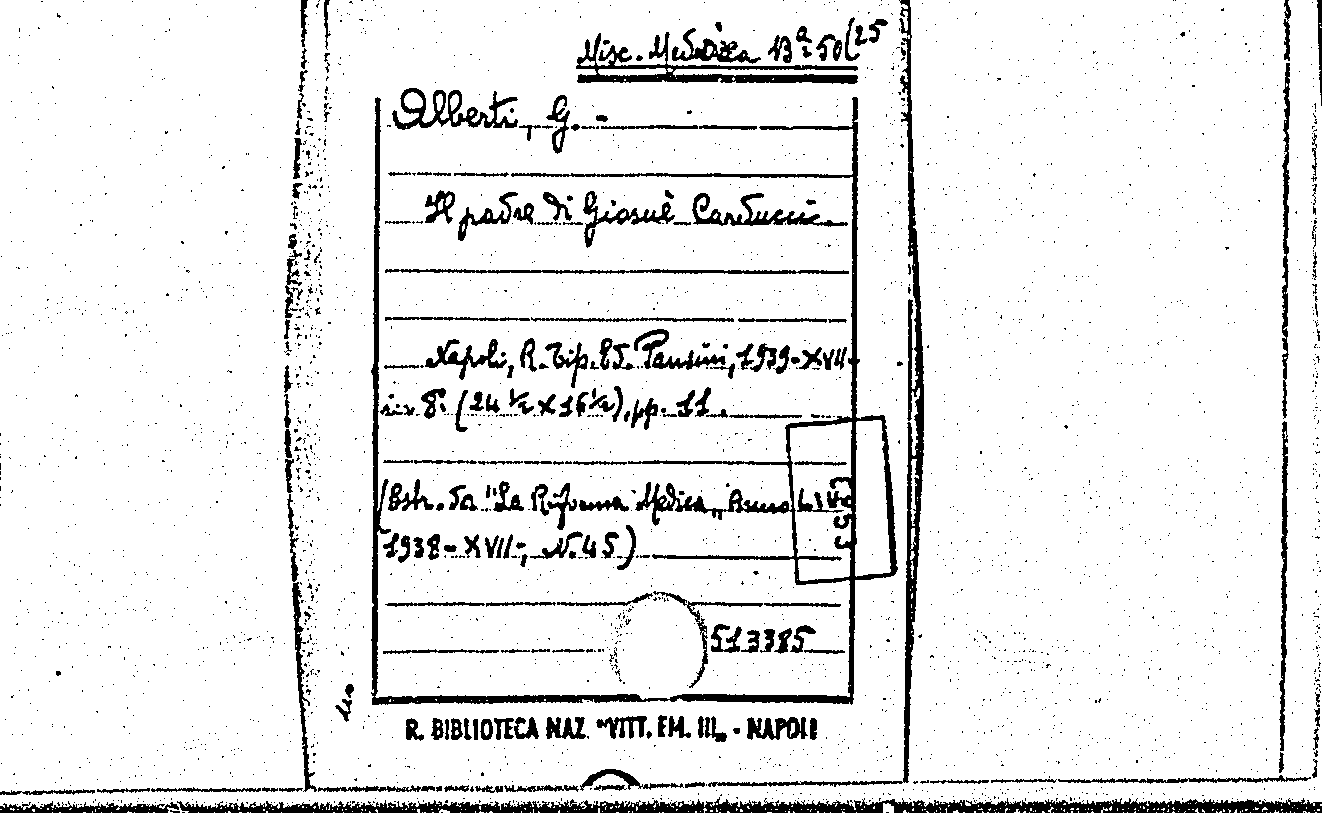 Misc. Medica Bª 50(25
Alberti, G. -
Il padre di Giosuè Carducci.
Napoli, R. Tip. Ed. Pansini, 1939-XVII-
in 8°. (24 ½ x 16 ½), pp. 11.
(Estr. da "La Riforma Medica„ Anno LIV,
1938-XVII-, N. 45)
513385
R. BIBLIOTECA NAZ. "VITT. EM. III„ - NAPOLI